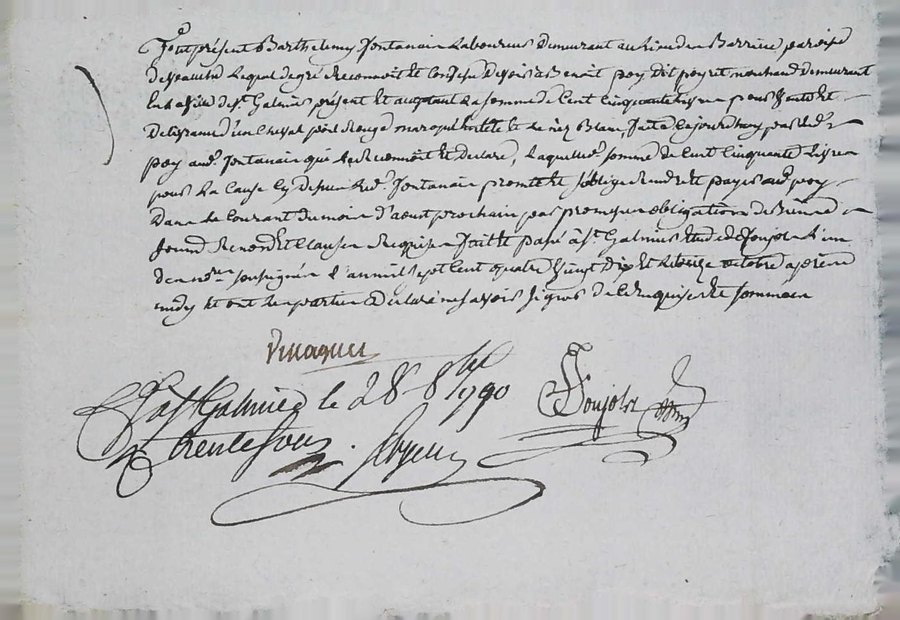 fut présent Barthelemy fontanair Laboureur Demeurant au lieu de Barriere paroisse
Lequel de gré Reconnoit Et Confesse Devoir à Benoit poy dit peyret marchand Demeurant
En La ville de St Galmier présent Et acceptant La somme de Cent Cinquante Livres pour Vente Et
Délivrance d'un Cheval poil Rouge marqué En tête Et Le néz Blanc faite Cejourdhuy par led.
poy aud. fontanair qui Le Reconnoit Et Declare, Laquelle d. somme de Cent Cinquante Livres
pour La Cause Cy Dessus Led. fontanair promet Et s'oblige Rendre Et payer aud. poy
Dans Le Courant du mois d'aout prochain par promesse obligation de Biens
soumis. Renon. Et Clauses Requises fait Et passé à St Galmier Etude de Soujols L'un
des no.res soussignés L'an mil sept Cent quatre Vingt Dix Et Le octobre après
midy Et ont Les parties Déclaré ne savoir signer de Ce Enquises Et sommées
Controllé
à St Galmier le 28 8bre 1790 Soujols
trente sous.